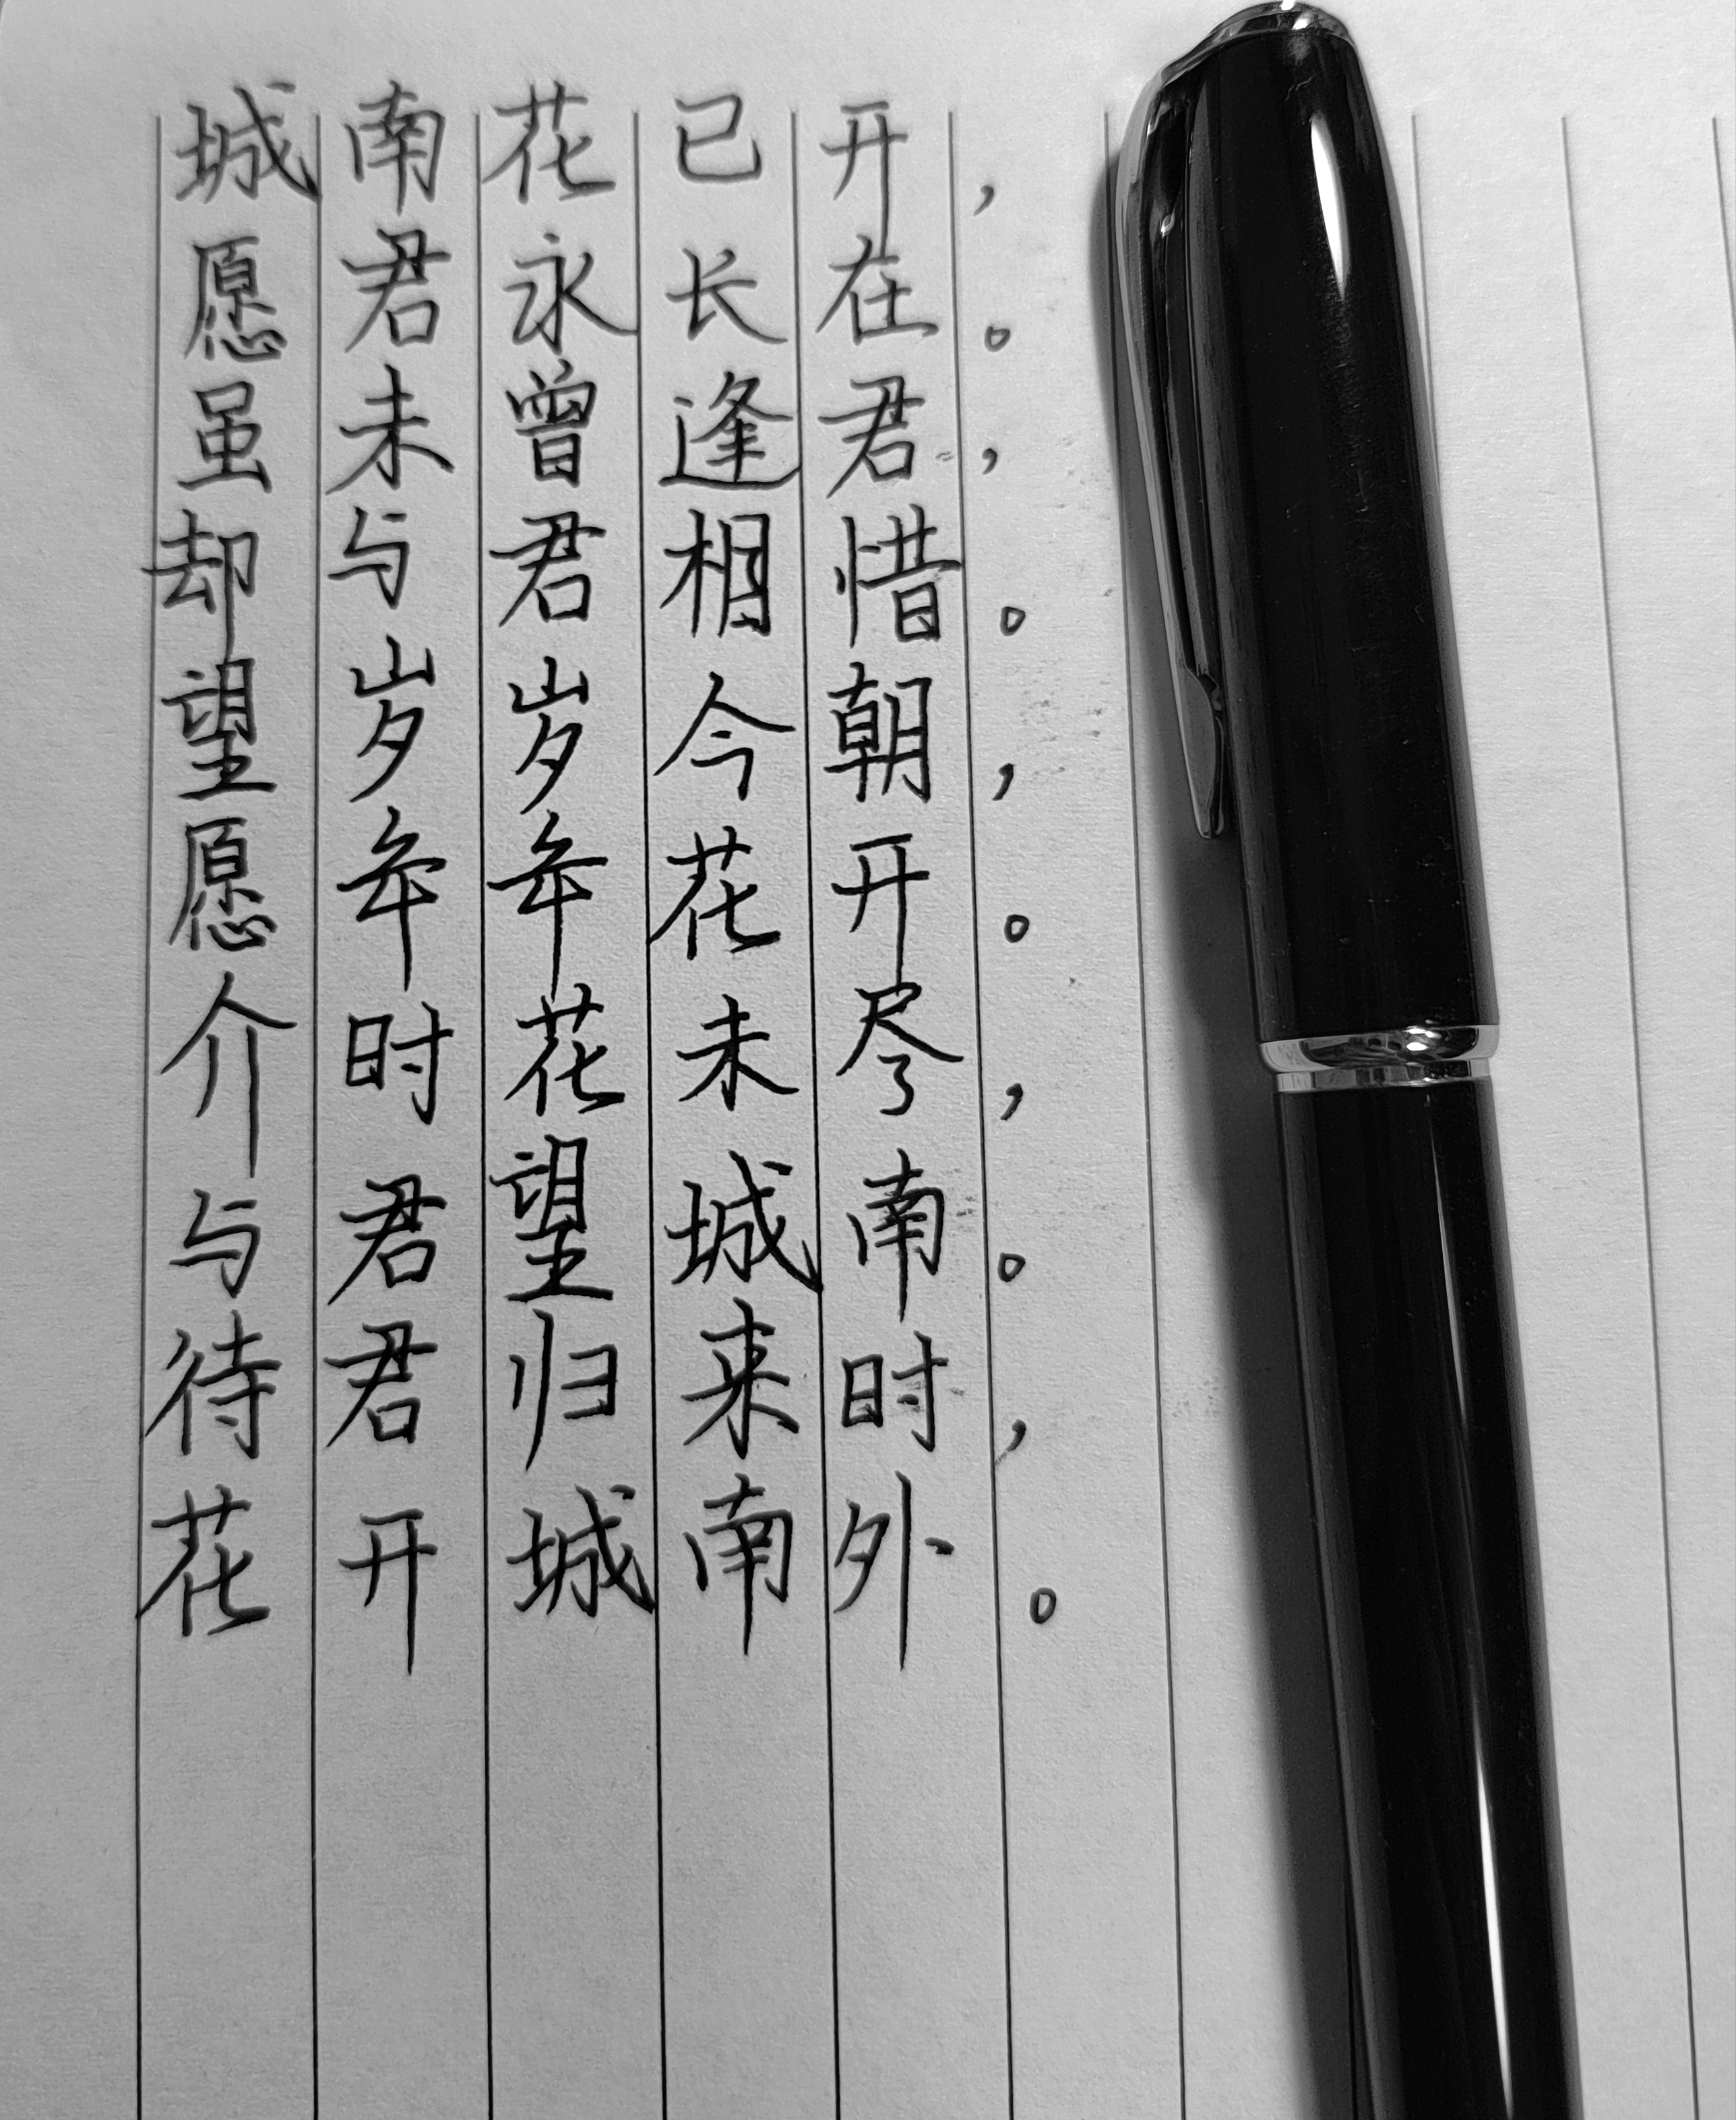 城南花已开，
愿君永长在。
虽未曾逢君，
却与君相惜。
望岁岁今朝，
愿年年花开。
介时花未尽，
与君望城南。
待君归来时，
花开城南外。